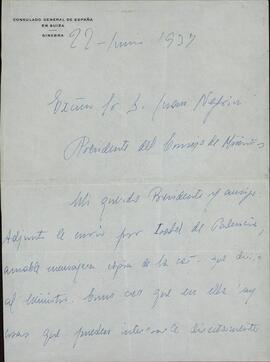 CONSULADO GENERAL DE ESPAÑA
EN SUIZA
GINEBRA
22 - Junio 1937
Excmo Sr D. Juan Negrín
Presidente del Consejo de Ministros
Mi querido Presidente y amigo:
Adjunto le envío por Isabel de Palencia,
amable mensajera copia de la carta que
al Ministro. Como creo que en ella hay
cosas que pueden interesarle directamente